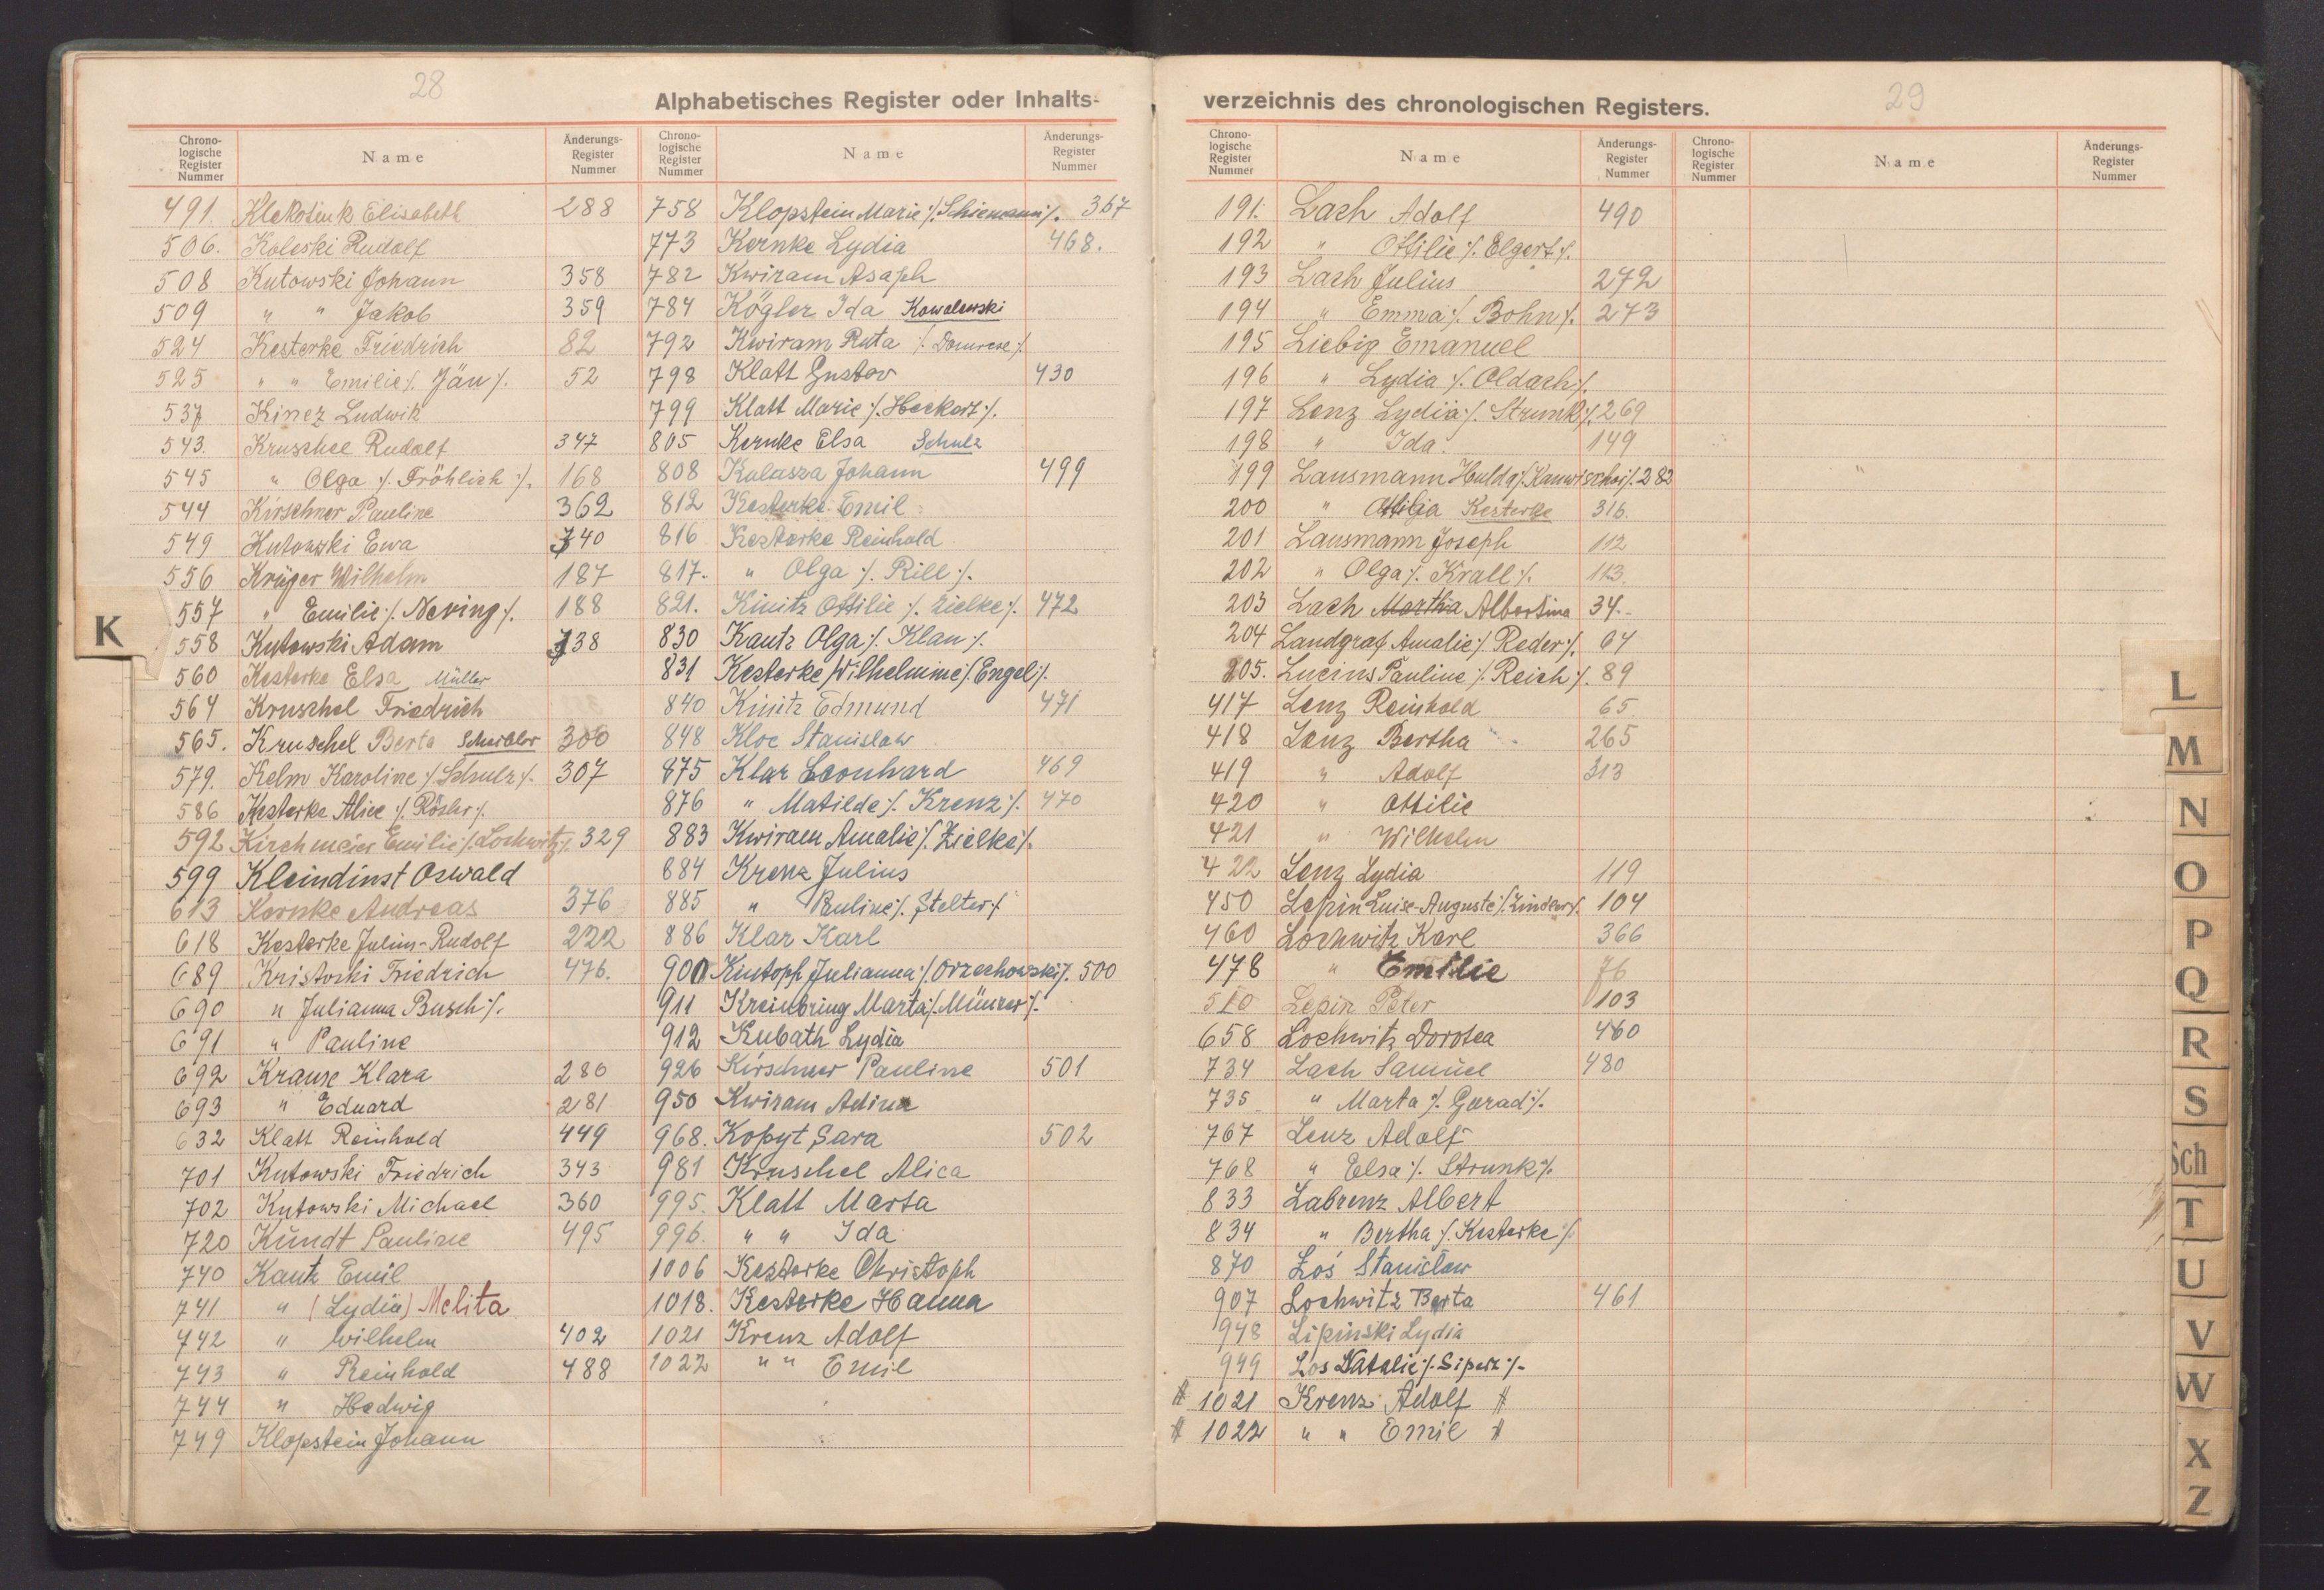 28
Alphabetisches Register oder Inhalts-
Chrono-
logische
Register
Nummer
Name
Änderungs-
Register
Nummer
491. Klekotiuk Elisabeth 288
506. Koleski Rudolf
508 Kutowski Johann 358
509 " " Jakob 359
524 Kesterke Friedrich 82
525 " " Emilie /. Jän /. 52
537 Kinez Ludwik
543. Kruschel Rudolf 347
545 " Olga /. Fröhlich /. 168
544 Kirschner Pauline 362
549 Kutowski Ewa 740
556 Krüger Wilhelm 187
557 " Emilie /. Neving /. 188
558 Kutowski Adam 338
560 Kesterke Elsa Müller
564 Kruschel Friedrich
565. Kruschel Berta Scheibler 300
579. Kelm Karoline /. Schulz /. 307
586 Kesterke Alice /. Rösler /.
592 Kirchmeier Emilie /. Lochwitz /. 329
599 Kleindinst Oswald
613 Kornke Andreas 376
618 Kesterke Julius-Rudolf 222
689 Kristoski Friedrich 476.
690 " Julianna Busch /.
691 " Pauline
692 Krause Klara 280
693 " Eduard 281
632 Klatt Reinhold 449
701 Kutowski Friedrich 343
702 Kutowski Michael 360
720 Kundt Pauline 495
740 Kautz Emil
741 " (Lydia) Melita
742 " Wilhelm 402
743 " Reinhold 488
744 " Hedwig
749 Klopstein Johann
Chrono-
logische
Register
Nummer
Name
Änderungs-
Register
Nummer
758 Klopstein Marie /. Schiemann /. 367
773 Kernke Lydia 468.
782 Kwiram Asaph
784 Kögler Ida Kowalewski
792 Kwiram Ruta /. Domrese /.
798 Klatt Gustav 430
799 Klatt Marie /. Heckert /.
805 Kernke Elsa Schulz
808 Kulasza Johann 499
812 Kesterke Emil
816 Kesterke Reinhold
817. " Olga /. Rill /.
821. Kinitz Ottilie /. Zielke /. 472
830 Kautz Olga /. Klau /.
831 Kesterke Wilhelmine /. Engel /.
840 Kinitz Edmund 471
848 Kloc Stanislaw
875 Klar Leonhard 469
876 " Matilde /. Krenz /. 470
883 Kwiram Amalie /. Zielke /.
884 Krenz Julius
885 " Pauline /. Stelter /.
886 Klar Karl
900 Kintoph Julianna /. Orzechowski /. 500
911 Kreinbring Marta /. Münzer /.
912 Kubath Lydia
926 Kirschner Pauline 501
950 Kwiram Adina
968. Kopyt Sara 502
981 Kruschel Alica
995. Klatt Marta
996. " " Ida
1006 Kesterke Christoph
1018. Kesterke Hanna
1021 Krenz Adolf
1022 " " Emil
K
29
verzeichnis des chronologischen Registers.
Chrono-
logische
Register
Nummer
Name
Änderungs-
Register
Nummer
191. Lach Adolf 490
192 " Ottilie /. Elgert /.
193 Lach Julius 272
194 " Emma /. Bohn /. 273
195 Liebig Emanuel
196 " Lydia /. Oldach /.
197 Lenz Lydia /. Strunk /. 269
198 " Ida. 149
199 Lausmann Hulda /. Kanwischer /. 282
200 " Ottilja Kesterke 316.
201 Lausmann Joseph 112
202 " Olga /. Krall /. 113.
203 Lach Martha Albertina 34.-
204 Landgraf Amalie /. Reder /. 64
205. Lucius Pauline /. Reich /. 89
417 Lenz Reinhold 65
418 Lenz Bertha 265
419 " Adolf 313
420 " Ottilie
421 " Wilhelm
422 Lenz Lydia 119
450 Lepin Luise-Auguste /. Zinder /. 104
460 Lochwitz Karl 366
478 " Emilie 76
510 Lepin Peter 103
658 Lochwitz Dorotea 460
734 Lach Samuel 480
735 " Marta /. Gerad /.
767 Lenz Adolf
768 " Elsa /. Strunk /.
833 Labrenz Albert
834 " Bertha /. Kesterke /.
870 Łoś Stanisław
907 Lochwitz Berta 461
948 Lipinski Lydia
949 Los Natalie /. Siperz /.
# 1021 Krenz Adolf #
# 1022 " " Emil #
Chrono-
logische
Register
Nummer
Name
Änderungs-
Register
Nummer
L
M
N
O
P
Q
R
S
Sch
T
U
V
W
X
Z